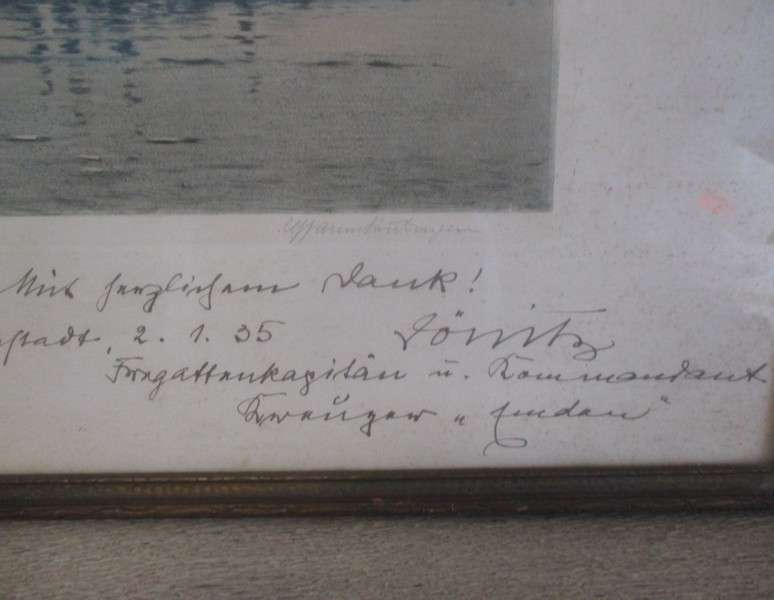 Mit herzlichem Dank!
stadt, 2. 1. 35 Dönitz
Fregattenkapitän u. Kommandant
Kreuzer „Emden“